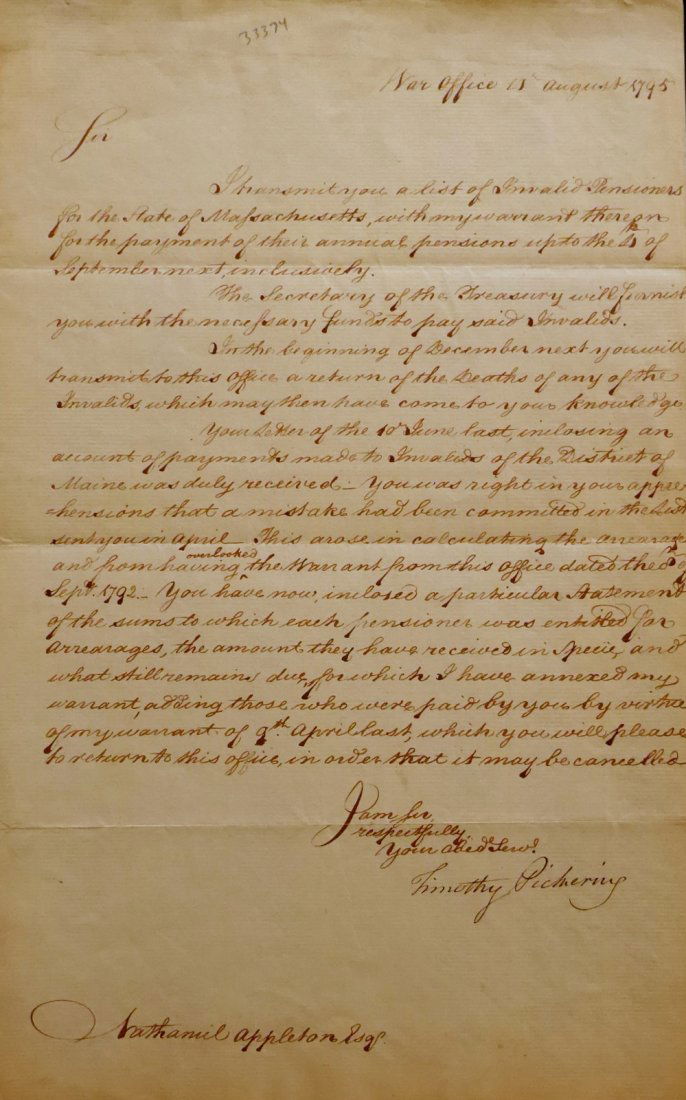 33374
War Office 11 August 1795
Sir
I transmit you a list of Invalid Pensioners
for the State of Massachusetts, with my warrant thereon
for the payment of their annual pensions up to the of
September next, inclusively.
The Secretary of the Treasury will furnish
you with the necessary funds to pay said Invalids.
In the beginning of December next you will
transmit to this office a return of the Deaths of any of the
Invalids, which may then have come to your knowledge
Your Letter of the 10 June last, inclosing an
account of payments made to Invalids of the District of
Maine was duly received – You was right in your appre
=hensions that a mistake had been committed in the List
sent you in April This arose in calculating the arrearages
and from having overlooked the Warrant from this office dated the
Sept. 1792 – You have now, inclosed a particular Statement
of the sums to which each pensioner was entitled for
arrearages, the amount they have received in Specie, and
what still remains due, for which I have annexed my
warrant, adding those who were paid by you by virtue
of my warrant of 9th. April last, which you will please
to return to this office, in order that it may be cancelled
I am Sir
respectfully
Your Obed. Serv.
Timothy Pickering
Nathaniel Appleton Esqr.